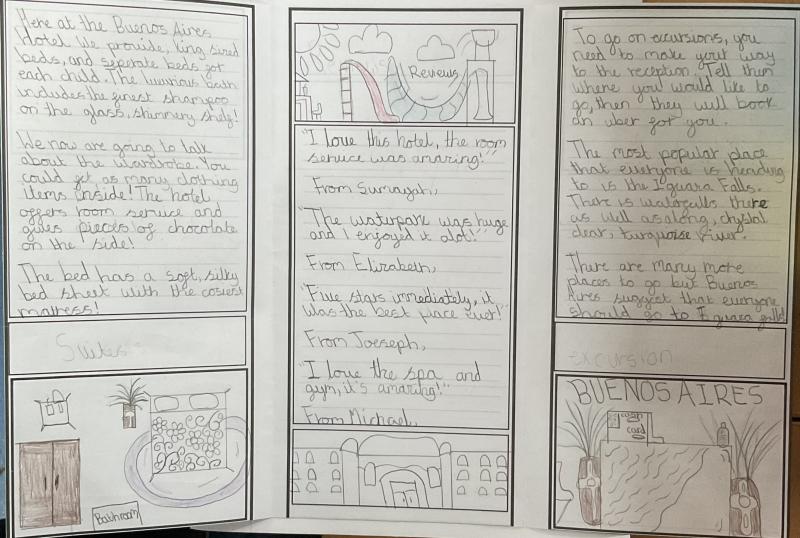 Here at the Buenos Aires
Hotel we provide, king sized
beds, and seperate beds for
each child. The luxurious bath
includes the finest shampoo
on the glass, shimmery shelf!
We now are going to talk
about the wardrobe. You
could get as many clothing
items inside! The hotel
offers room service and
gives pieces of chocolate
on the side!
The bed has a soft, silky
bed sheet with the cosiest
matress!
Suites
Bathroom
Reviews
"I love this hotel, the room
service was amazing!"
From Sumayah,
"The waterpark was huge
and I enjoyed it alot!"
From Elizabeth,
"Five stars immediately, it
was the best place ever!"
From Joeseph,
"I love the spa and
gym, it's amazing!"
From Michael,
To go on excursions, you
need to make your way
to the reception. Tell them
where you would like to
go, then they will book
an uber for you.
The most popular place
that everyone is heading
to is the Iguara Falls.
There is waterfalls there
as well as along, chrystal
clear, turquoise river.
There are many more
places to go but Buenos
Aires suggest that everyone
should go to Iguara falls!
excursion
BUENOS AIRES
cash
card